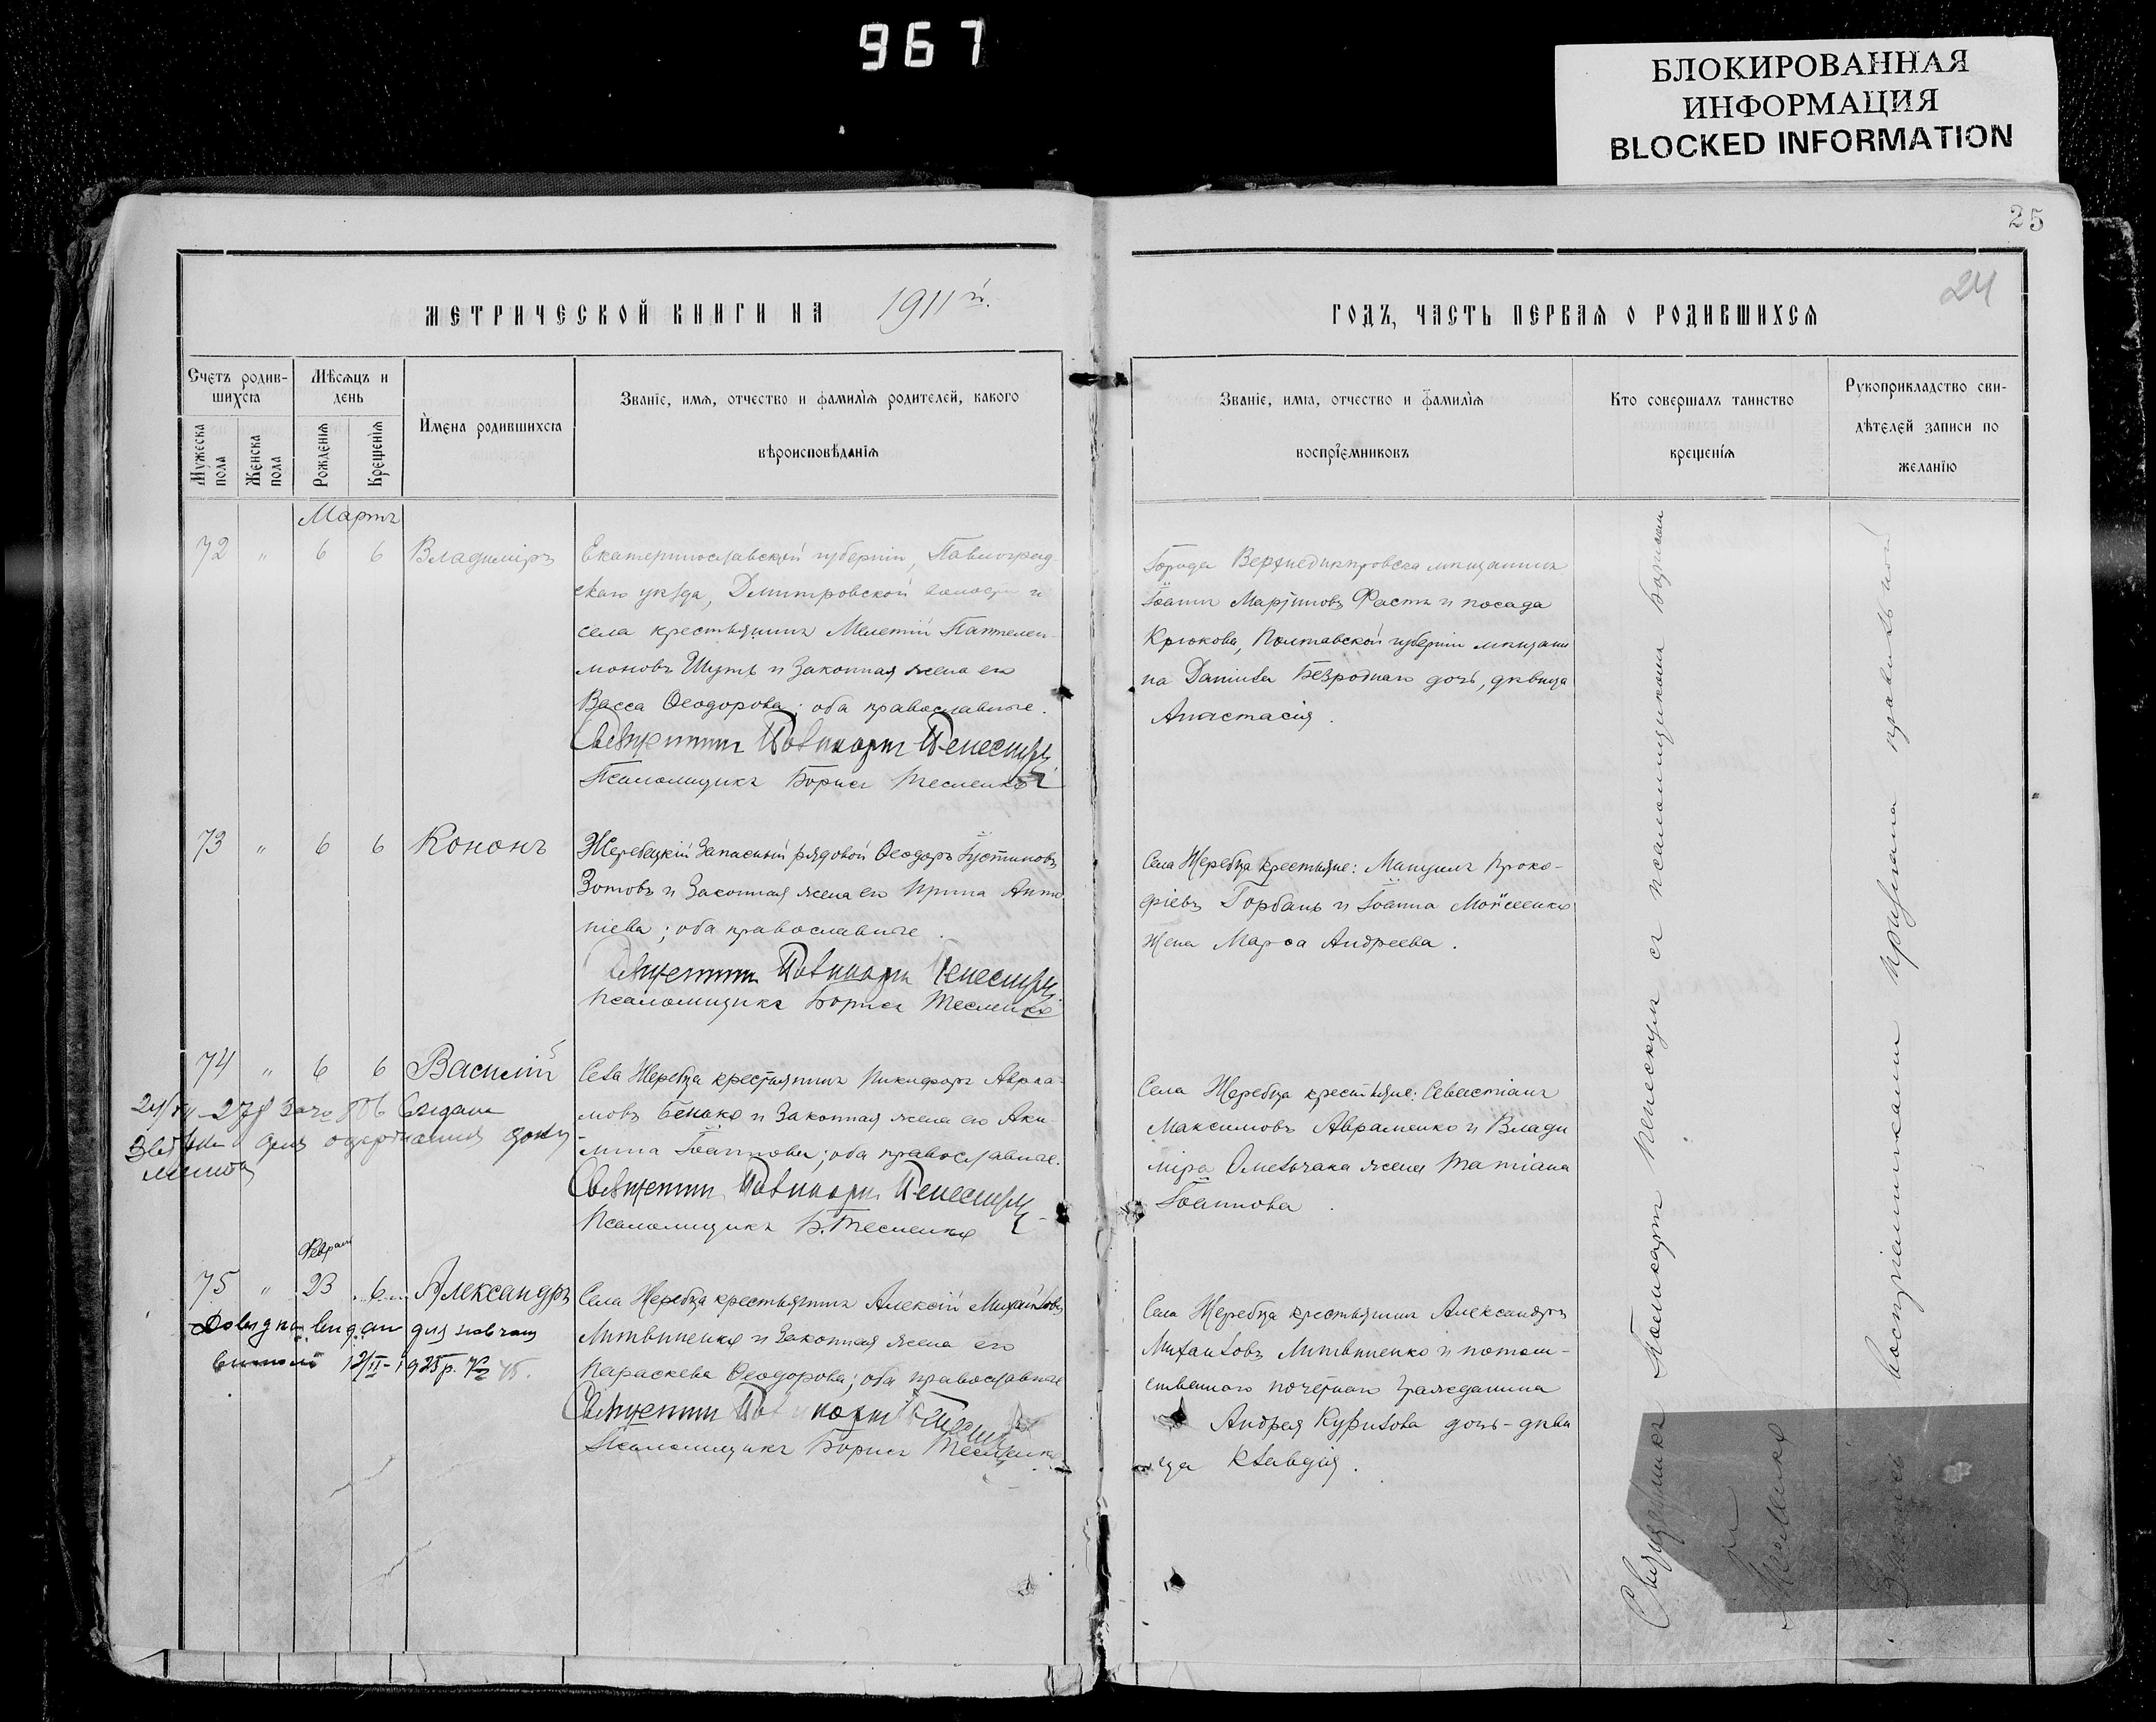 967
БЛОКИРОВАННАЯ
ИНФОРМАЦИЯ
BLOCKED INFORMATION
25
24
МЕТРИЧЕСКОЙ КНИГИ НА 1911й.
ГОДЪ, ЧАСТЬ ПЕРВАЯ О РОДИВШИХСЯ
Счетъ родив-
шихся
Мужеска
пола
Женска
пола
Мѣсяцъ и
день
Рожденія
Крещенія
Имена родившихся
Званіе, имя, отчество и фамилія родителей, какого
вѣроисповѣданія
Званіе, имя, отчество и фамилія
воспріемниковъ
Кто совершалъ таинство
крещенія
Рукоприкладство сви-
дѣтелей записи по
желанію
Мартъ
72 " 6 6 Владиміръ
Екатеринославской губерніи, Павлоград-
скаго уѣзда, Димитровской волости и
села крестьянинъ Мелетій Пантелеи-
моновъ Шуть и законная жена его
Васса Ѳеодорова; оба православные.
Священникъ Поликарпъ Пенескулъ
Псаломщикъ Борисъ Тесленко
Города Верхнеднѣпровска мѣщанинъ
Іоаннъ Мартиновъ Фастъ и посада
Крюкова, Полтавской губерніи мѣщани
на Даниила Безроднаго дочь, дѣвица
Анастасія.
73 " 6 6 Кононъ
Жеребецкій запасный рядовой Ѳеодоръ Іустиновъ
Зотовъ и законная жена его Ирина Анто
ніева; оба православные.
Священникъ Поликарпъ Пенескулъ
Псаломщикъ Борисъ Тесленко
Села Жеребца крестьяне: Мануилъ Проко-
фіевъ Горбань и Іоанна Мойсеенко
жена Марѳа Андреева.
74 " 6 6 Василій
Села Жеребца крестьянинъ Никифоръ Авраа-
мовъ Бенько и законная жена его Аки-
лина Іоаннова; оба православные.
Священникъ Поликарпъ Пенескулъ
Псаломщикъ Б. Тесленко
Села Жеребца крестьяне: Севастіанъ
Максимовъ Авраменко и Влади
міра Омельчака жена Татіана
Іоаннова.
Февраль
75 " 23 6 Александръ
12/II-1925р.
Села Жеребца крестьянинъ Алексій Михайловъ
Литвиненко и законная жена его
Параскева Ѳеодорова; оба православные
Священникъ Поликарпъ Пенескулъ
Псаломщикъ Борисъ Тесленко
Села Жеребца крестьянинъ Александръ
Михайловъ Литвиненко и потом-
ственнаго почетнаго гражданина
Андрея Курилова дочь-дѣви
ца Клавдія.
Священникъ Поликарпъ Пенескулъ съ псаломщикомъ Борисомъ
Тесленко
воспріемниками признана правильной
Запись